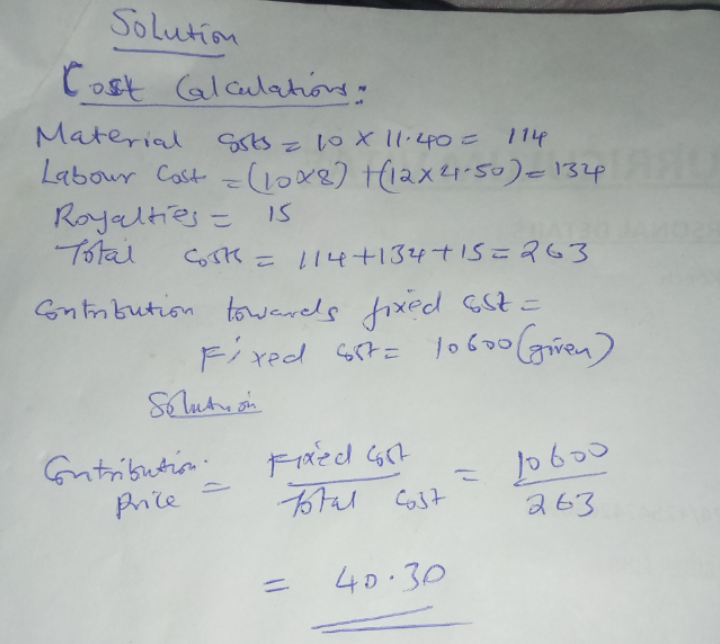 Solution
Cost Calculations:
Material Costs = 10 X 11.40 = 114
Labour Cost = (10x8) + (12x4.50) = 134
Royalties = 15
Total Costs = 114+134+15 = 263
Contribution towards fixed Cost =
Fixed Cost = 10600 (given)
Solution
Contribution price = Fixed Cost / Total Cost = 10600 / 263
= 40.30